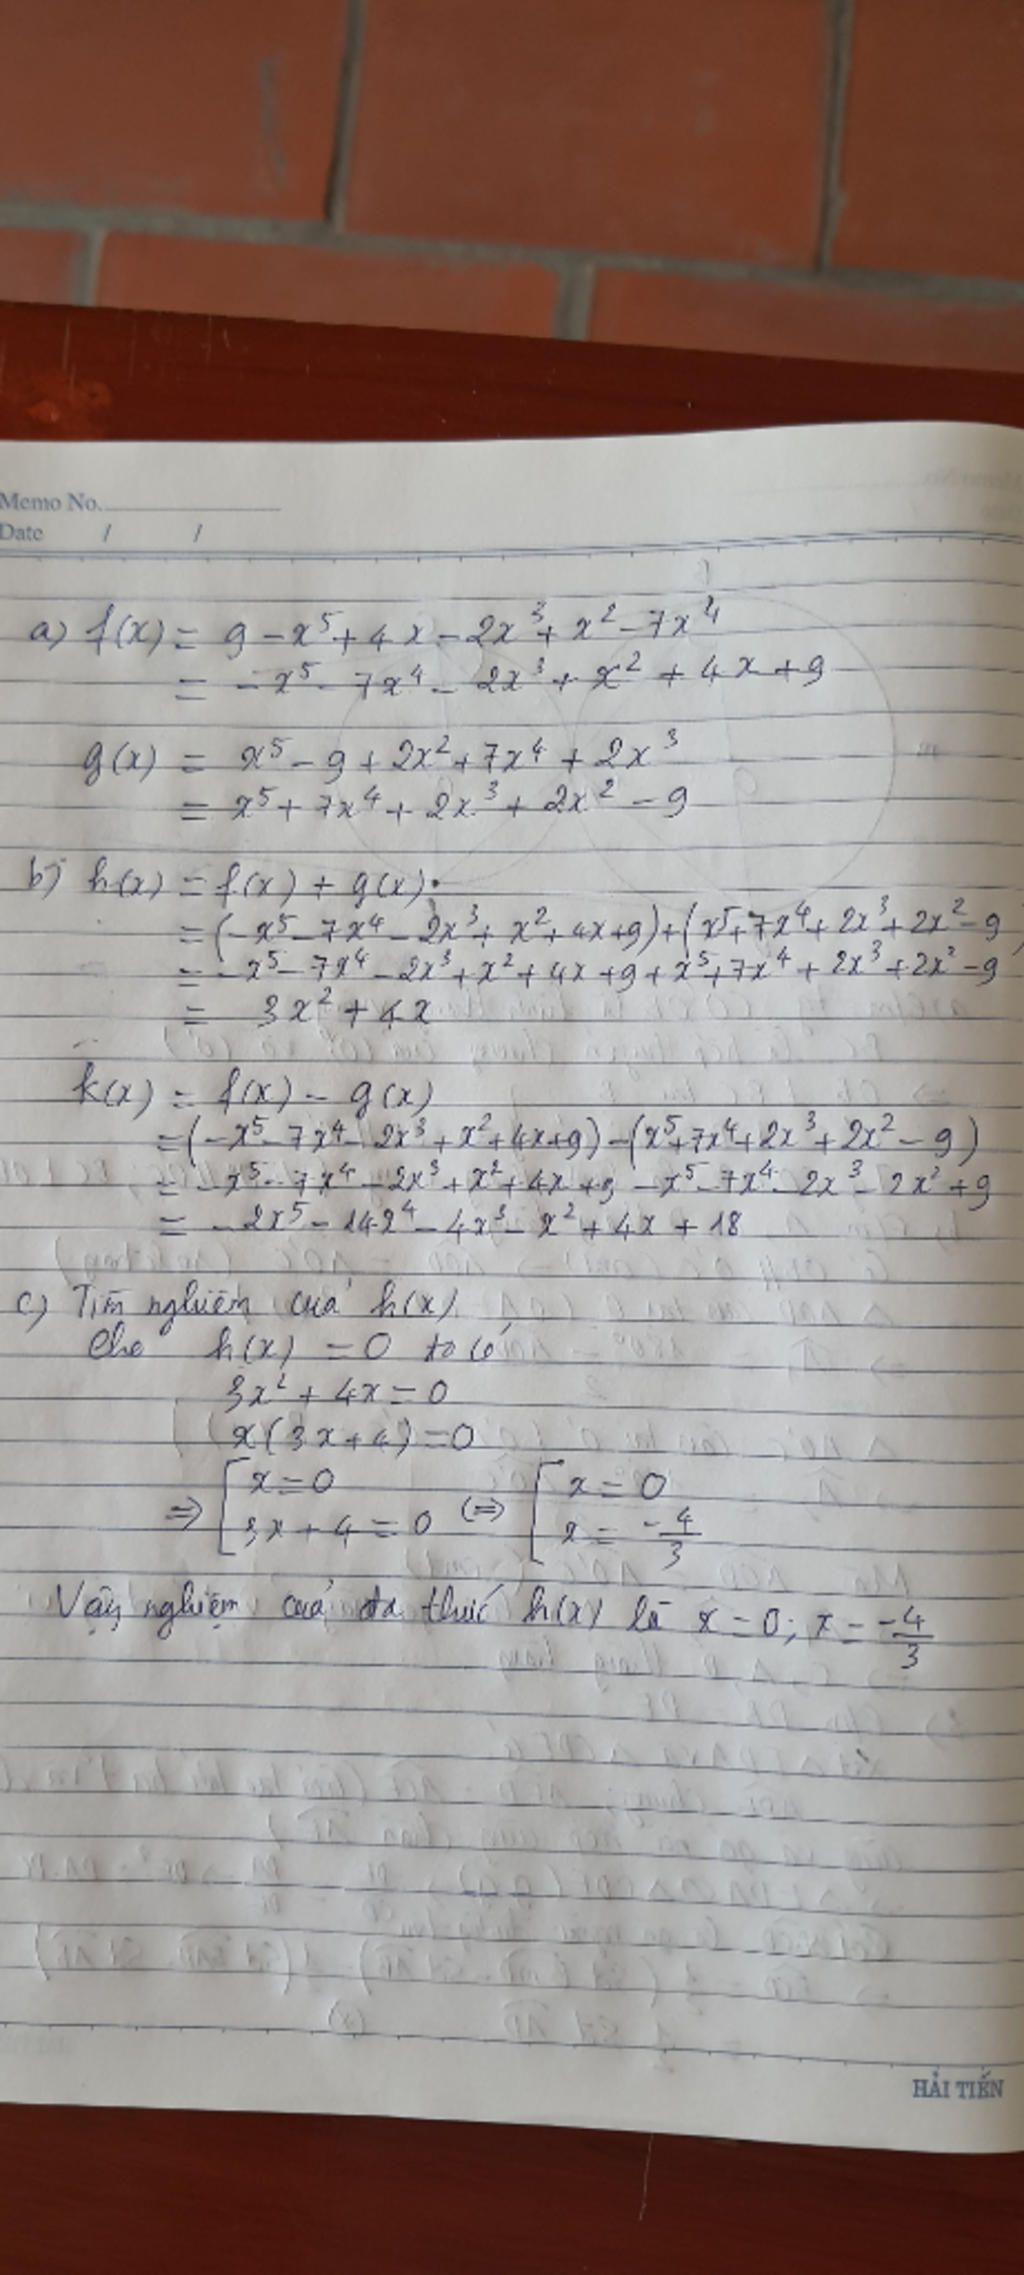 Memo No.
Date / /
a) f(x) = 9 - x⁵ + 4x - 2x³ + x² - 7x⁴
= -x⁵ - 7x⁴ - 2x³ + x² + 4x + 9
g(x) = x⁵ - 9 + 2x² + 7x⁴ + 2x³
= x⁵ + 7x⁴ + 2x³ + 2x² - 9
b) h(x) = f(x) + g(x).
= (-x⁵ - 7x⁴ - 2x³ + x² + 4x + 9) + (x⁵ + 7x⁴ + 2x³ + 2x² - 9)
= -x⁵ - 7x⁴ - 2x³ + x² + 4x + 9 + x⁵ + 7x⁴ + 2x³ + 2x² - 9
= 3x² + 4x
k(x) = f(x) - g(x)
= (-x⁵ - 7x⁴ - 2x³ + x² + 4x + 9) - (x⁵ + 7x⁴ + 2x³ + 2x² - 9)
= -x⁵ - 7x⁴ - 2x³ + x² + 4x + 9 - x⁵ - 7x⁴ - 2x³ - 2x² + 9
= -2x⁵ - 14x⁴ - 4x³ - x² + 4x + 18
c) Tìm nghiệm của h(x)
Cho h(x) = 0 ta có
3x² + 4x = 0
x(3x + 4) = 0
⇒ [ x = 0 [ x = 0
3x + 4 = 0 (⇒) x = -4/3
Vậy nghiệm của đa thức h(x) là x = 0; x = -4/3
HẢI TIẾN